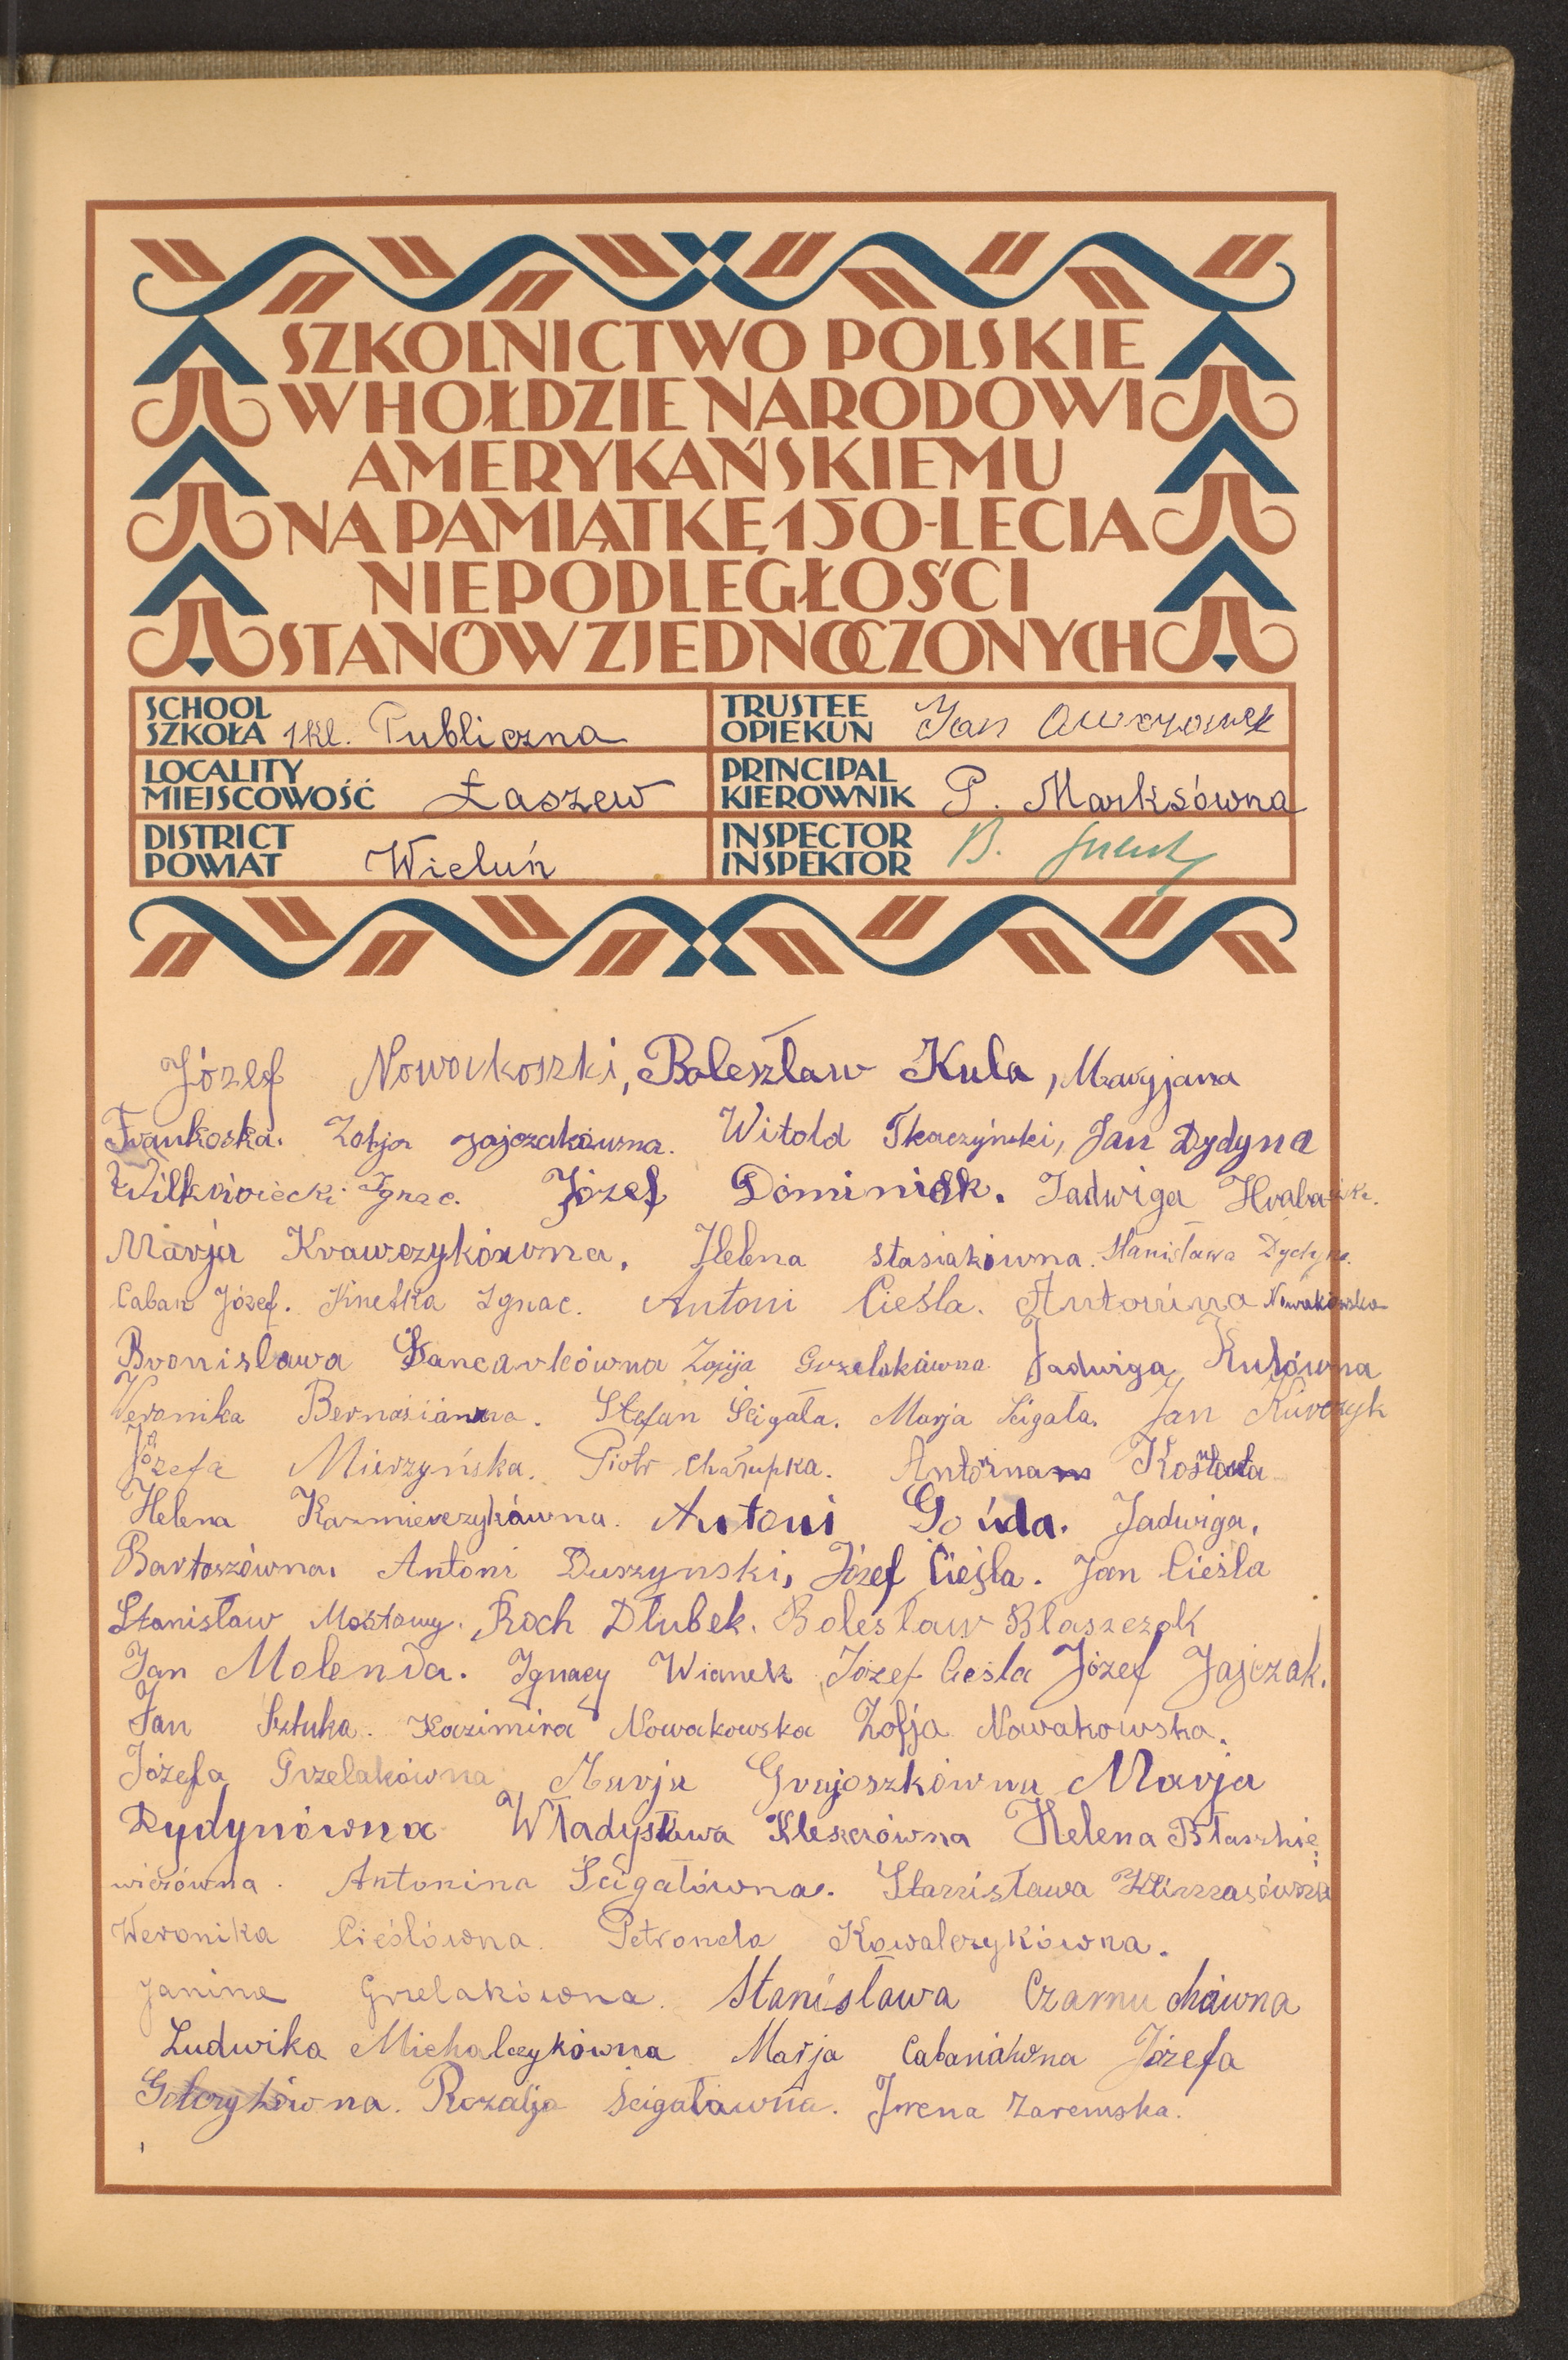 SZKOLNICTWO POLSKIE
W HOŁDZIE NARODOWI
AMERYKAŃSKIEMU
NA PAMIĄTKĘ 150-LECIA
NIEPODLEGŁOŚCI
STANÓW ZJEDNOCZONYCH
SCHOOL
SZKOŁA 1 kl. Publiczna
TRUSTEE
OPIEKUN Jan
LOCALITY
MIEJSCOWOŚĆ Łaszew
PRINCIPAL
KIEROWNIK P. Marksówna
DISTRICT
POWIAT Wieluń
INSPECTOR
INSPEKTOR B.
Józef Nowokoszki, Boleszław Kula, Maryjana
Frankoska. Zofja Jajczakówna. Witold Tkaczyński, Jan Dydyna
Wilkowiecki Ignac. Józef Dominiak. Jadwiga
Marja Krawczykówna. Helena Stasiakówna. Stanisława Dydyna.
Caban Józef. Ignac. Antoni Cieśla. Antonina Nowakowska
Bronisława Zofija Grzelakówna Jadwiga Kulówna
Weronika Stefan Ścigała. Marja Ścigała. Jan Kurczyk
Józefa Mierzyńska. Piotr Chałupka.
Helena Kazmierczykówna. Antoni Gojda. Jadwiga.
Bartoszówna. Antoni Duszynski, Józef Cieśla. Jan Cieśla
Stanisław Mostowy. Roch Dłubek. Bolesław Błaszczok
Jan Molenda. Ignacy Wianek Józef Cieśla Józef Jajczak.
Jan Sztuka. Kazimira Nowakowska Zofja Nowakowska.
Józefa Grzelakówna Marja Grajoszkówna Marja
Dydynówna Władysława Kleszczówna Helena Błaszkie
wiczówna. Antonina Ścigałówna. Stanisława Klimasówna
Weronika Cieślówna. Petronela Kowalczykówna.
Janina Grzelakówna. Stanisława Czarnuchówna
Ludwika Michalczykówna Marja Cabanówna Józefa
Rozalja Ścigałówna. Irena Zaremska.